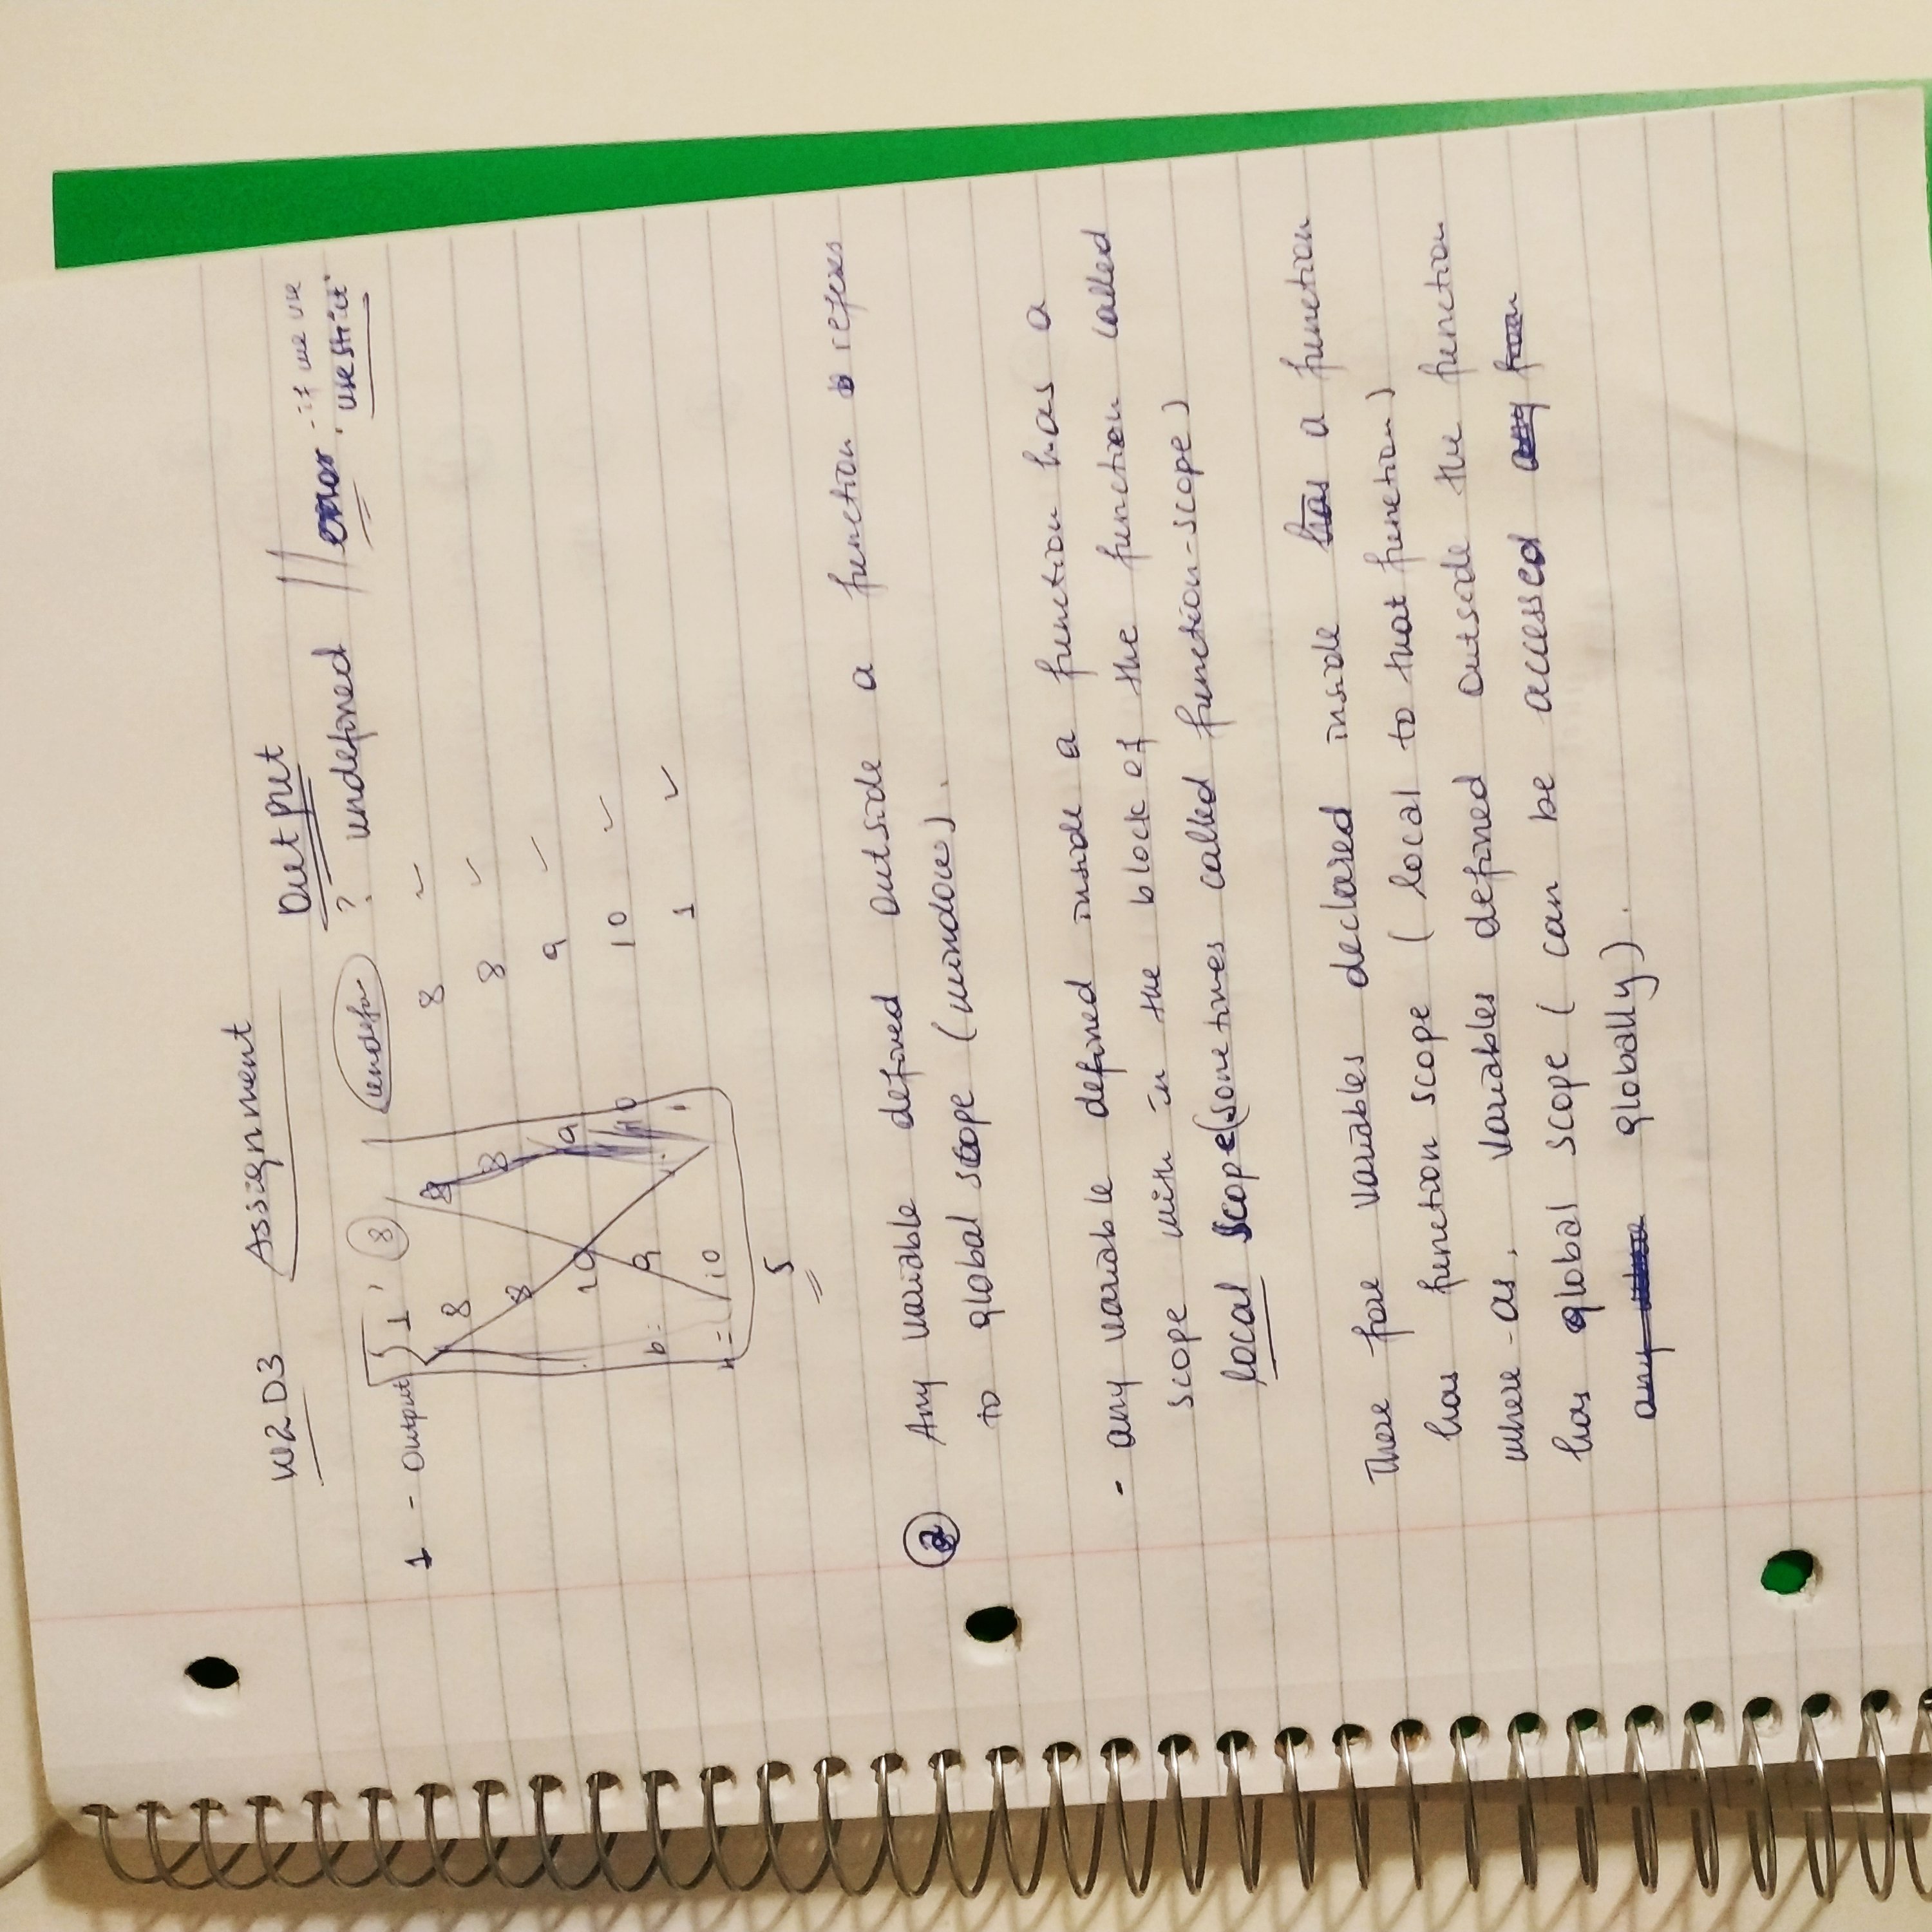 W2D3 Assignment
Output
undefined ? undefined // error - if we use
use strict
1 - Output 1 ' 8
8 8 8
8 8 8
10 9 9
b = 9 10 10
= 10 1
5
2 Any variable defined outside a function refers
to global scope (window).
- any variable defined inside a function has a
scope with in the block of the function called
local scope (sometimes called function-scope)
There fore variables declared inside has a function
has function scope ( local to that function)
where-as, variables defined outside the function
has global scope ( can be accessed any from
any where globally).